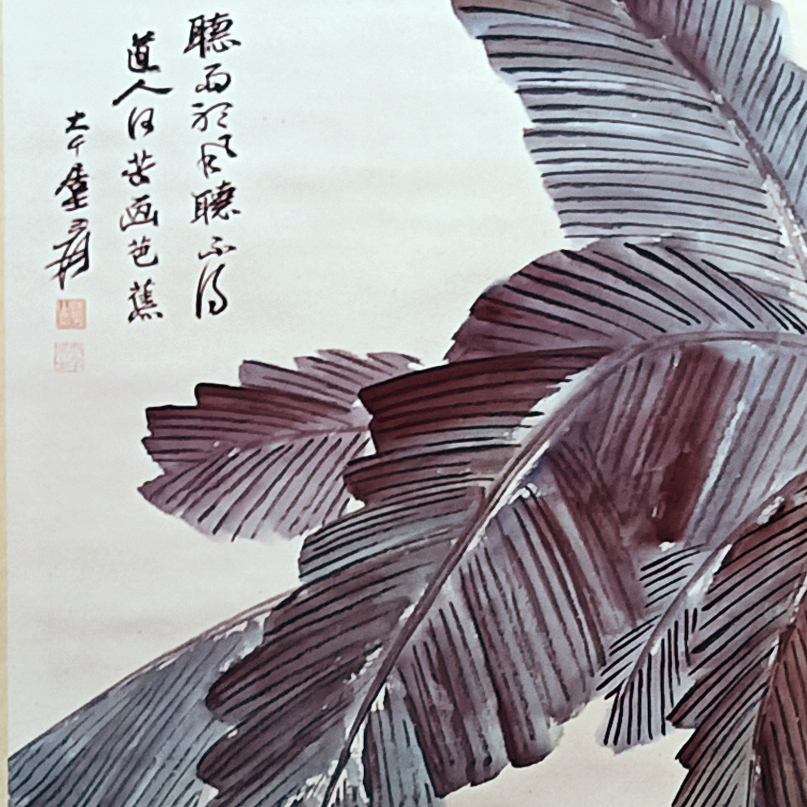 聽雨聽風聽不得
道人何苦画芭蕉
大千居士爰